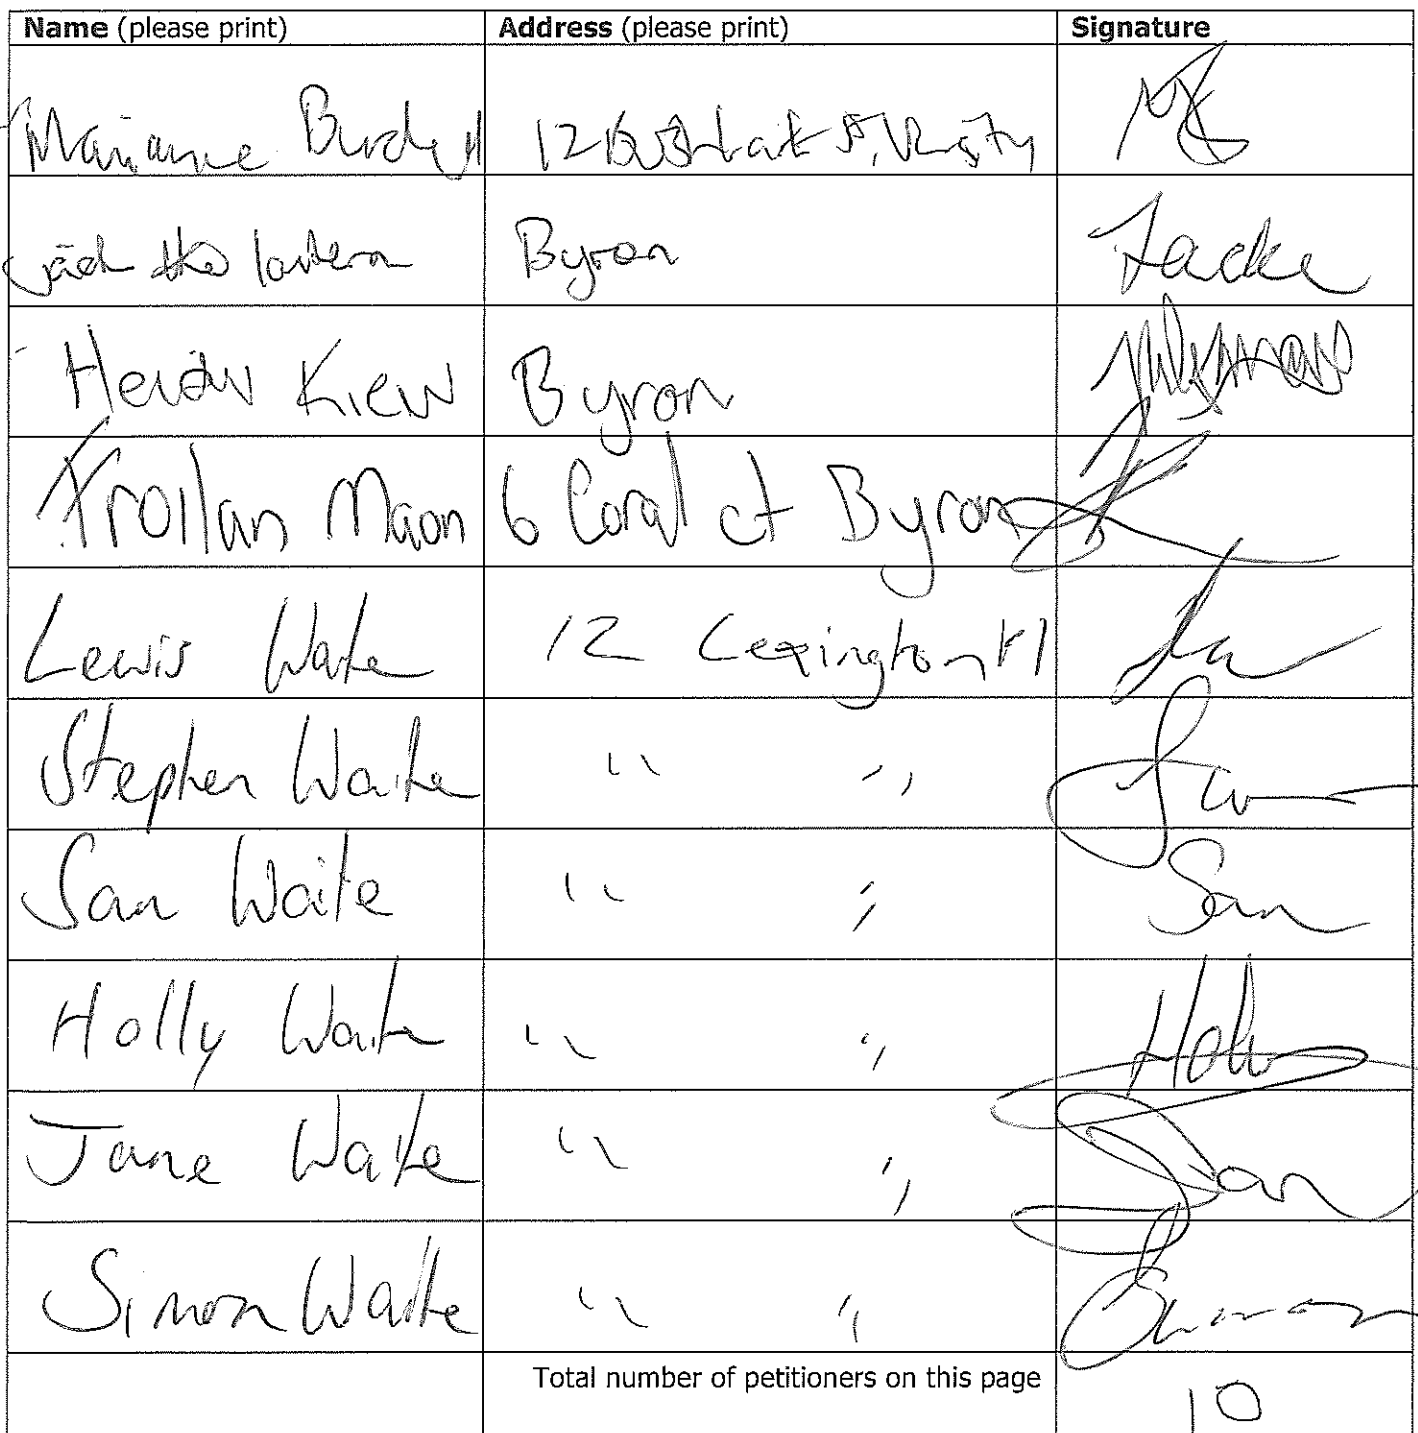 Name (please print) Address (please print) Signature
Marianne Burdett 12
Jack the lantern Byron Jacke
Kiew Byron
Froilan Maon 6 Coral ct Byron
Lewis Waite 12 Lexington Pl
Stephen Waite " "
Sam Waite " " Sam
Holly Waite " " Holly
Jane Waite " "
Simon Waite " " Simon
Total number of petitioners on this page 10